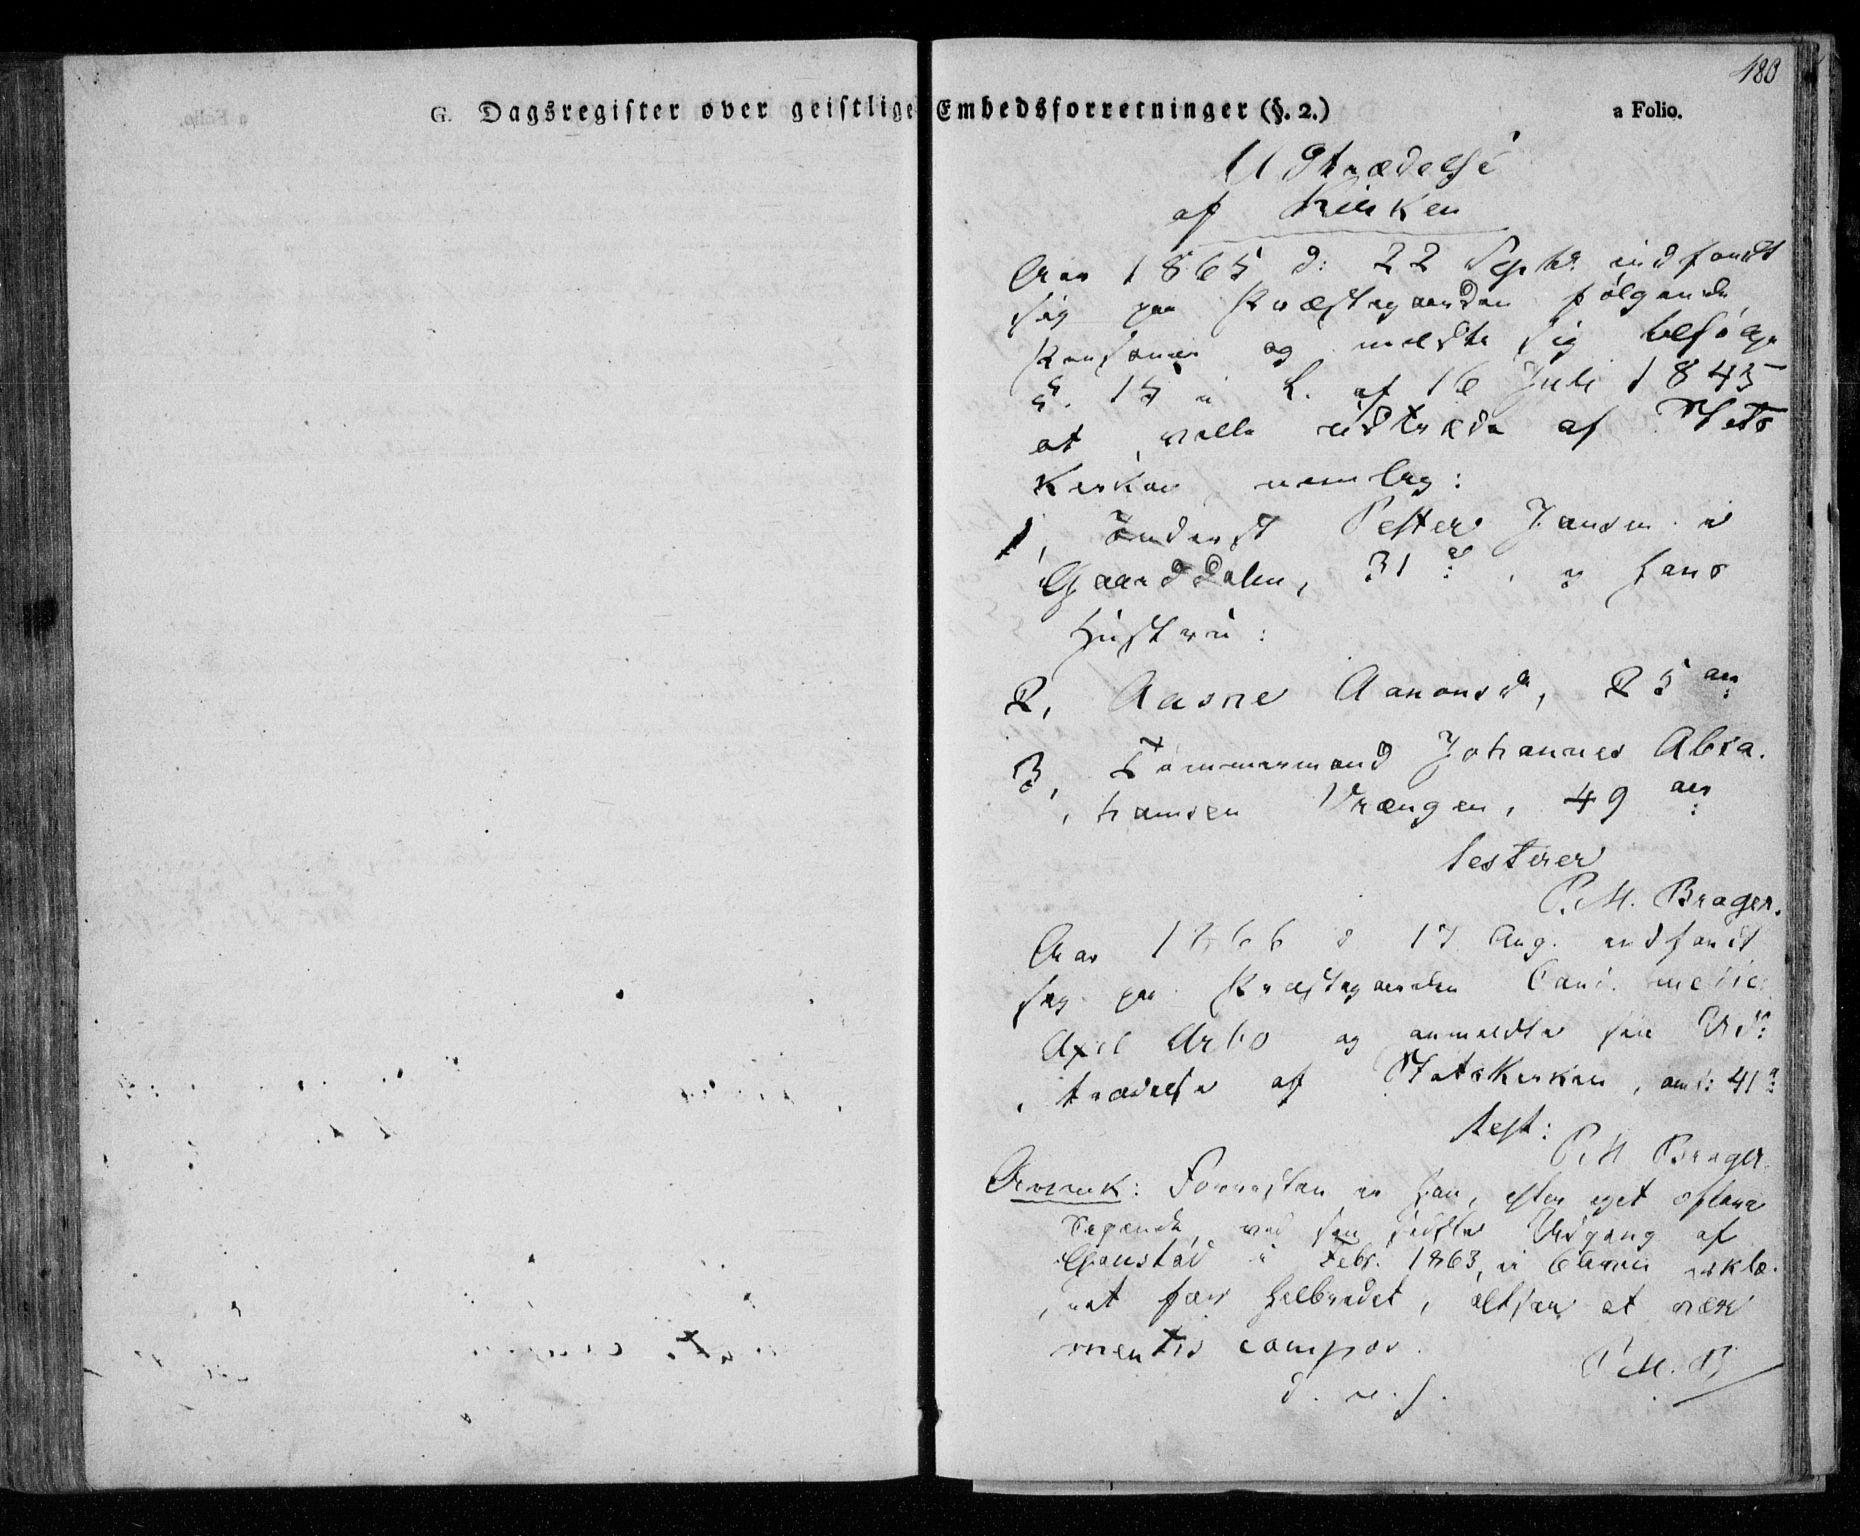 480
G. Dagsregister over geistlige Embedsforretninger (§. 2.)
a Folio.
Udtrædelse
af Kirken
Aar 1865 d: 22 Septbr indfandt
sig paa Præstegaarden følgende
Personer og meldte sig ifølge
§. 15 i L. af 16 Juli 1845
at ville udtræde af Stats
Kirken nemlig:
1, Inderst Petter Jansen i
Gaarddalen, 31 a:, og hans
Hustru:
2, Aasne Aanonsd, 25 aar
3, Tømmermand Johannes Abra-
hamsen Vrængen, 49 aar
testerer
P. M. Brager.
Aar 1866 d 17 Aug. indfandt
sig paa Præstegaarden Cand. medic.
Axel Arbo og anmeldte sin Ud-
trædelse af Statskirken, 41 a:
test:
P. M Brager.
Anmærk: Forresten er han, efter eget
ved sin sidste Udgang af
Gaustad i Febr. 1863, erklæ-
ret for helbredet, altsaa at være
mentis compos.
P. M. B,
d. u. s.